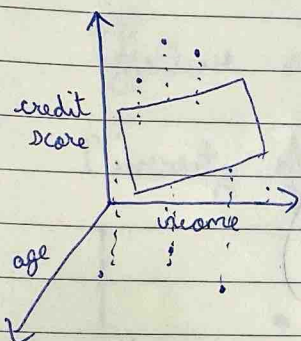 credit
score
income
age